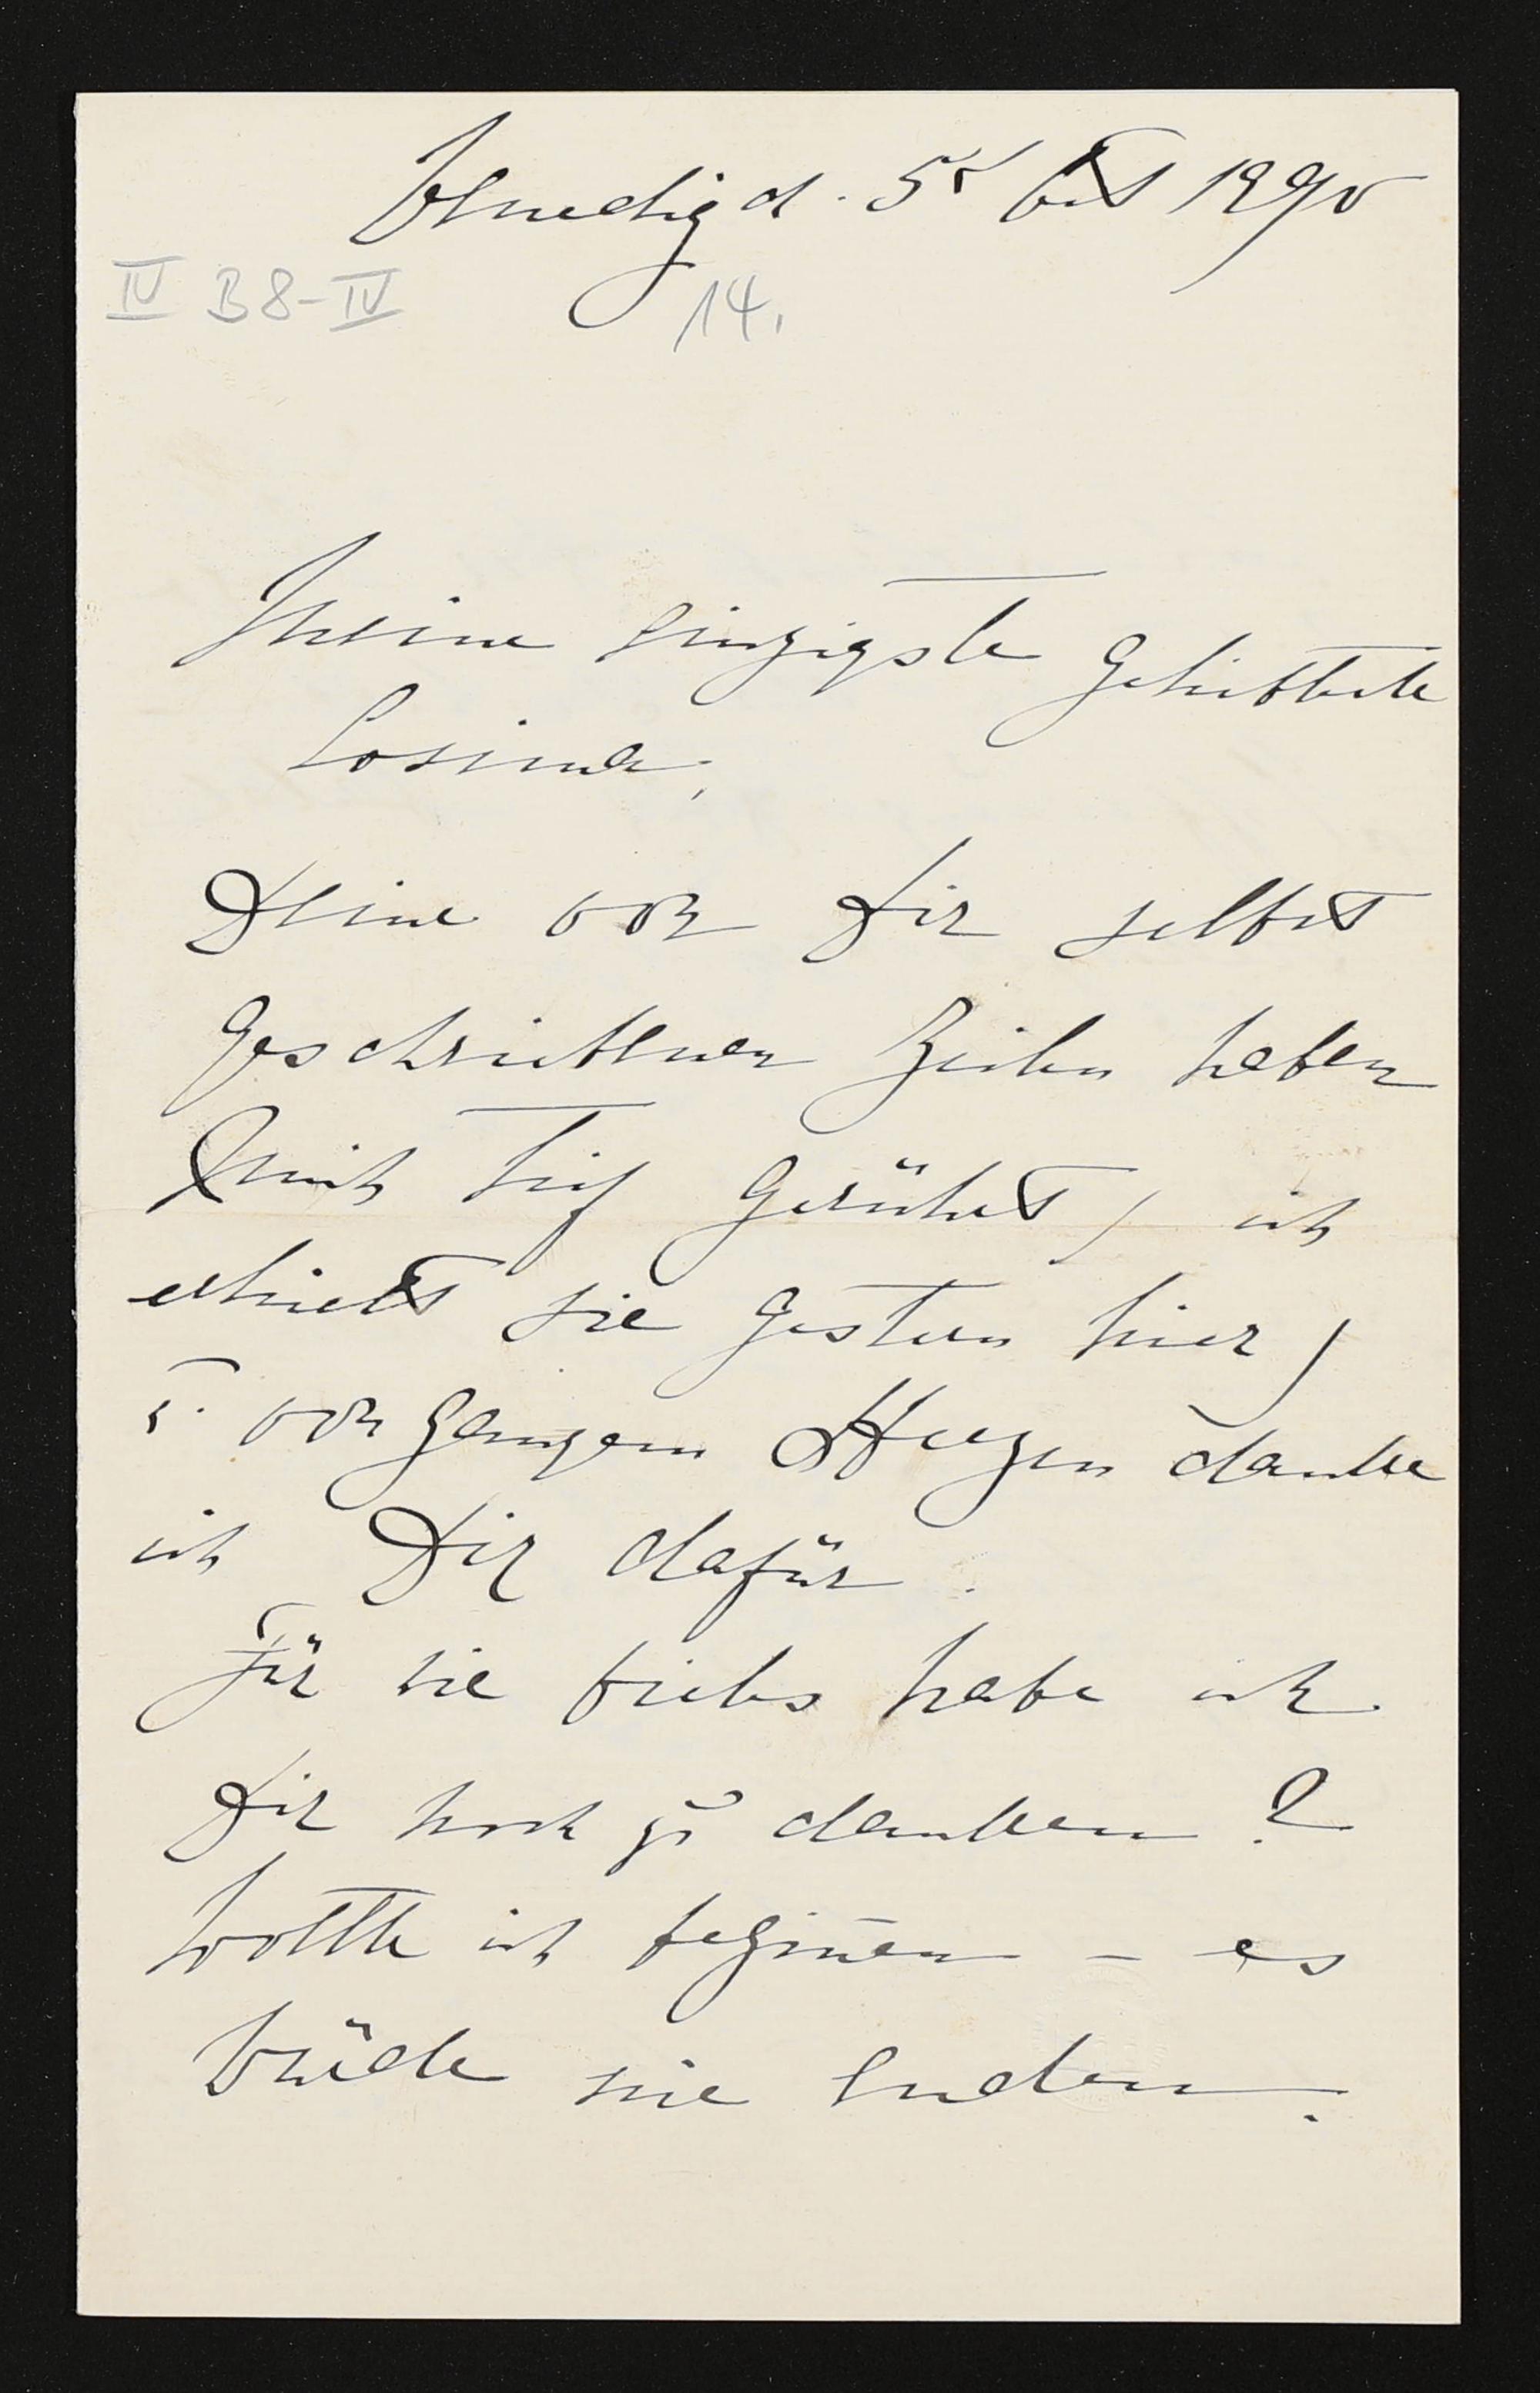 Venedig d. 5t Oct 1890
IV B 8-IV 14.
Meine Einzigste Geliebteste
Cosima,
Deine von Dir selbst
Geschriebenen Zeilen haben
Mich tief Gerührt, ich
erhielt sie Gestern hier,
u. von Ganzem Herzen danke
ich Dir dafür.
Für wie vieles habe ich
Dir noch zu danken?
Wollte ich beginnen – es
würde nie Enden.